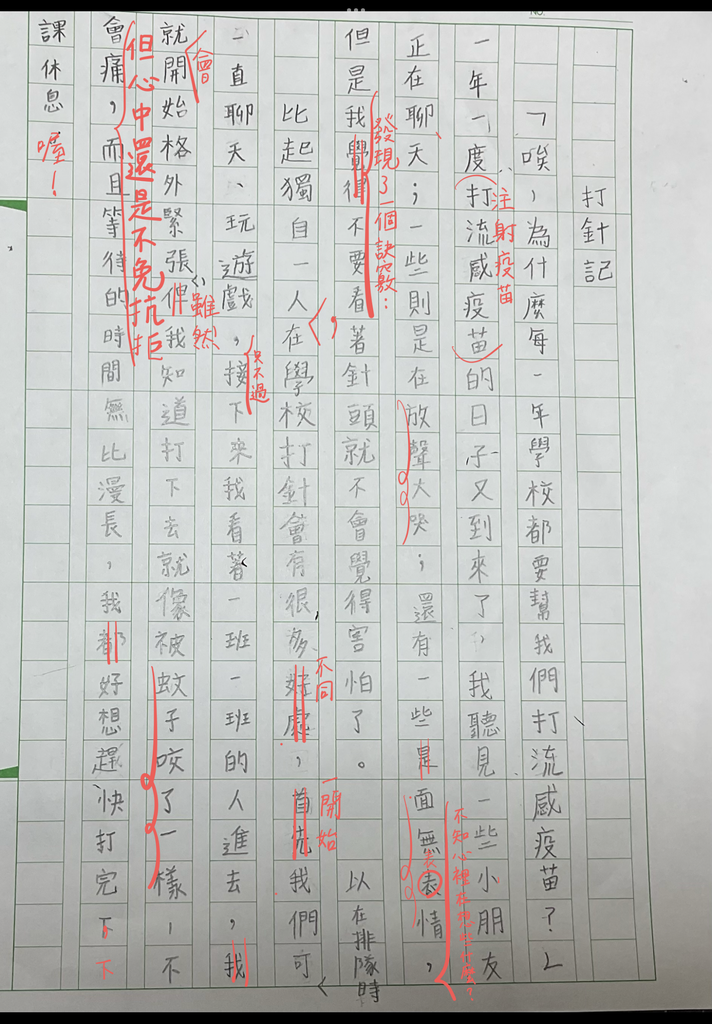 打針記
「唉,為什麼每一年學校都要幫我們打流感疫苗?」
注射疫苗
一年一度打流感疫苗的日子又到來了,我聽見一些小朋友
不知心裡在想些什麼?
正在聊天;一些則是在放聲大哭;還有一些是面無表情,
表
發現了一個訣竅:
但是我覺得不要看著針頭就不會覺得害怕了。
以在排隊時
不同
一開始
比起獨自一人在學校打針會有很多好處,首先我們可
只不過
一直聊天、玩遊戲,接下來我看著一班一班的人進去,我
會
雖然
就開始格外緊張,但我知道打下去就像被蚊子咬了一樣,不
但心中還是不免抗拒
會痛,而且等待的時間無比漫長,我都好想趕快打完下
下
課休息喔!